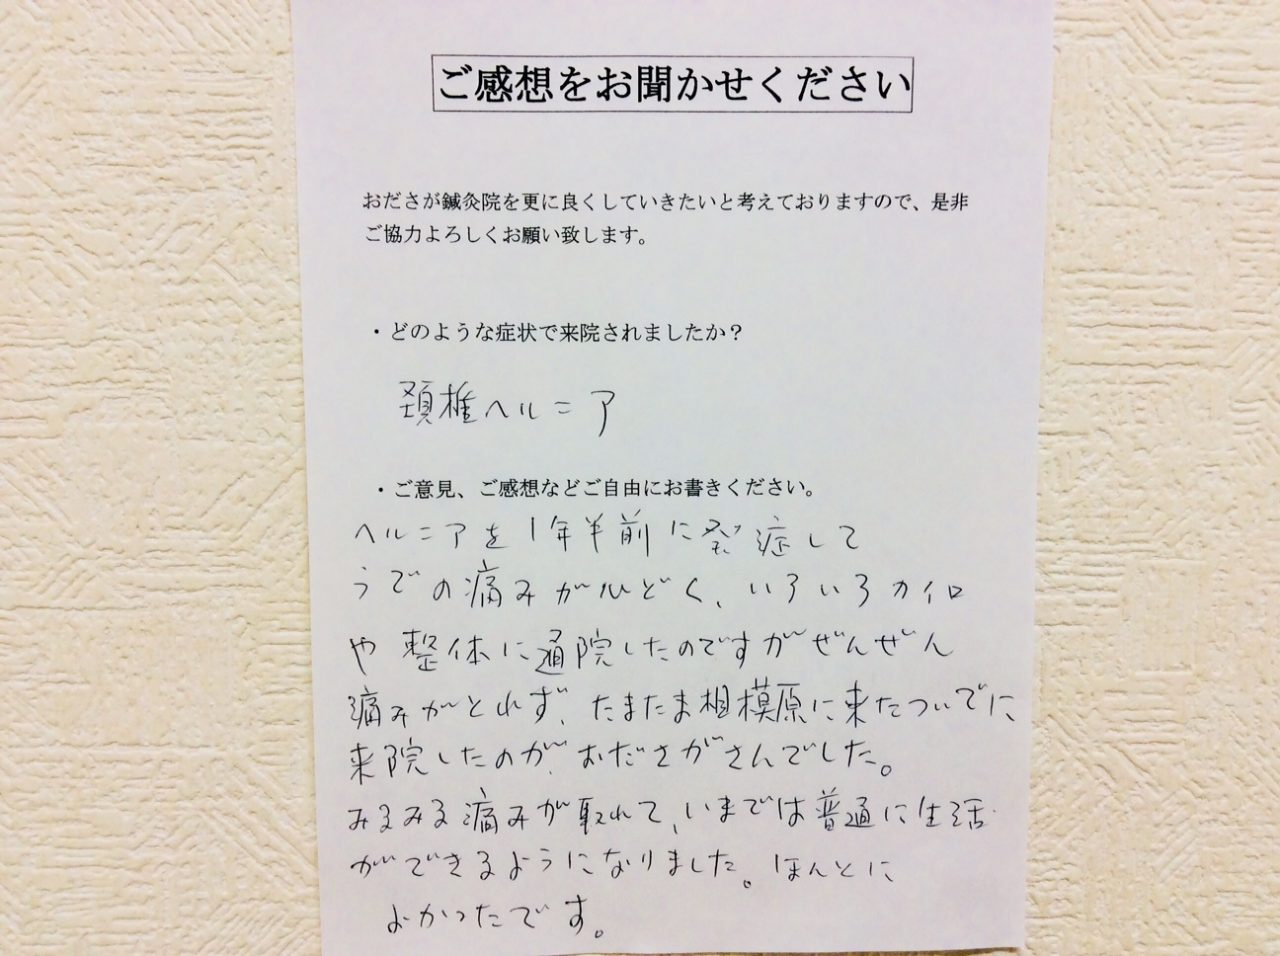 ご感想をお聞かせください
おださが鍼灸院を更に良くしていきたいと考えておりますので、是非
ご協力よろしくお願い致します。
・どのような症状で来院されましたか？
頚椎ヘルニア
・ご意見、ご感想などご自由にお書きください。
ヘルニアを1年半前に発症して
うでの痛みがひどく、いろいろカイロ
や整体に通院したのですがぜんぜん
痛みがとれず、たまたま相模原に来たついでに
来院したのが、おださがさんでした。
みるみる痛みが取れて、いまでは普通に生活
ができるようになりました。ほんとに
よかったです。